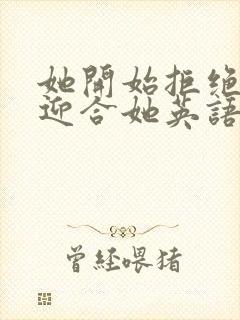 她開始拒絶
迎合她英語
曾經喂猪